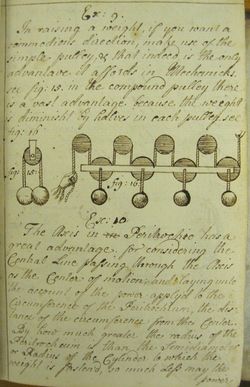 Ex: 9.
In raising a weight, if you want a
commodious direction, make use of the
simple pulley, & that indeed is the only
advantage it affords in Mechanicks.
see fig: 15. in the compound pulley there
is a vast advantage because the weight
is diminisht by halves in each pulley, see
fig: 16
fig: 15:
fig: 16.
Ex: 10
The Axis in Peritrochio has a
great advantage, for considering the
Central Line passing through the Axis
as the Center of motion, and laying into
the account of the power apply'd to the
Circumference of the Peritrochium, the dis-
tance of the circumference from the Center.
By how much greater the radius of the
Peritrocheum is than the Semidiameter
or Radius of the Cylinder to which the
weight is fasten'd, so much less may the
power